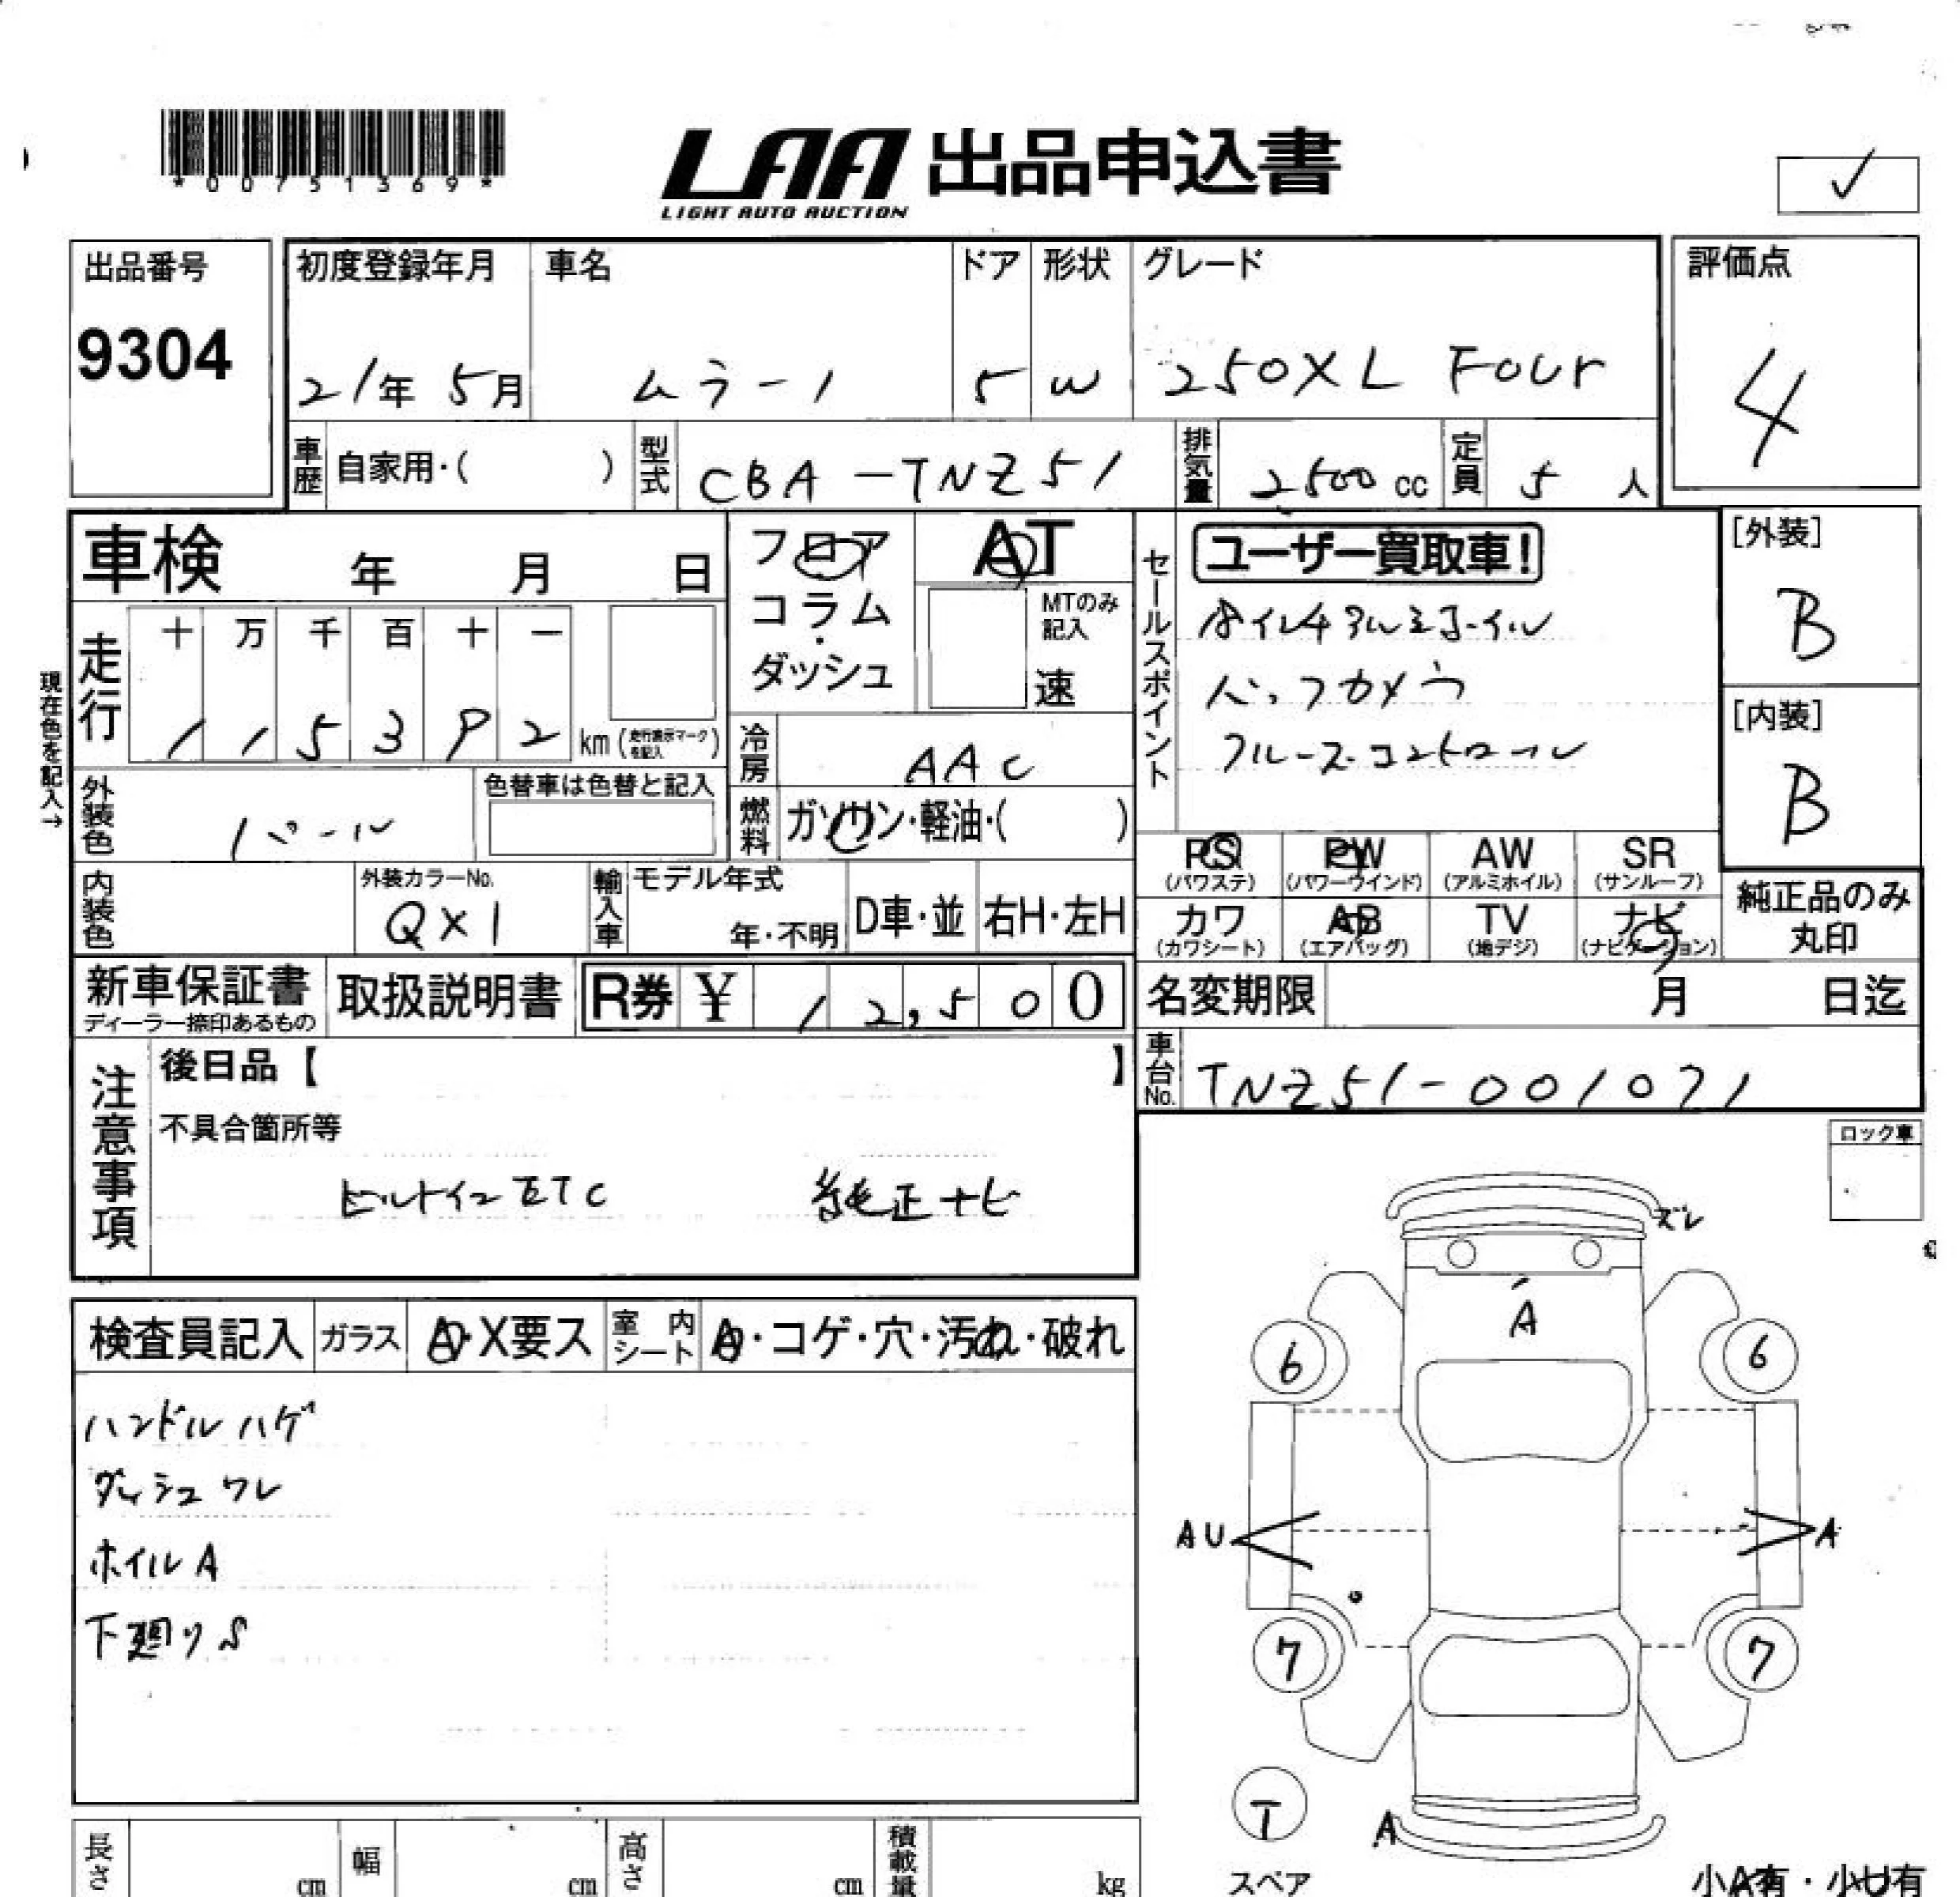 *00751369*
LAA 出品申込書
LIGHT AUTO AUCTION
✓
出品番号
9304
初度登録年月
21年 5月
車名
ムラーノ
ドア
5
形状
W
グレード
250XL Four
評価点
4
車歴 自家用・( )
型式 CBA-TNZ51
排気量 2500 cc
定員 5 人
車検 年 月 日
フロア
コラム
・
ダッシュ
AT
MTのみ
記入
速
セールスポイント
ユーザー買取車!
18インチアルミホイル
バックカメラ
クルーズコントロール
[外装]
B
[内装]
B
現在色を記入→
走行
十 万 千 百 十 一
1 1 5 3 9 2 km (走行表示マークを記入)
冷房 AAC
外装色 パール
色替車は色替と記入
燃料 ガソリン・軽油・( )
PS (パワステ)
PW (パワーウインド)
AW (アルミホイル)
SR (サンルーフ)
カワ (カワシート)
AB (エアバッグ)
TV (地デジ)
ナビ (ナビゲーション)
純正品のみ
丸印
内装色
外装カラーNo.
QX1
輸入車
モデル年式
年・不明
D車・並
右H・左H
新車保証書
ディーラー捺印あるもの
取扱説明書
R券 ¥ 12,500
名変期限 月 日迄
車台No. TNZ51-001071
注意事項
後日品【 】
不具合箇所等
ビルトインETC 純正ナビ
ロック車
検査員記入
ガラス A・X要ス
室内シート A・コゲ・穴・汚れ・破れ
ハンドルハゲ
ダッシュワレ
ホイルA
下廻りS
ズレ
A
6
6
AU
A
7
7
T
スペア
A
小A有・小U有
長さ cm
幅 cm
高さ cm
積載量 kg